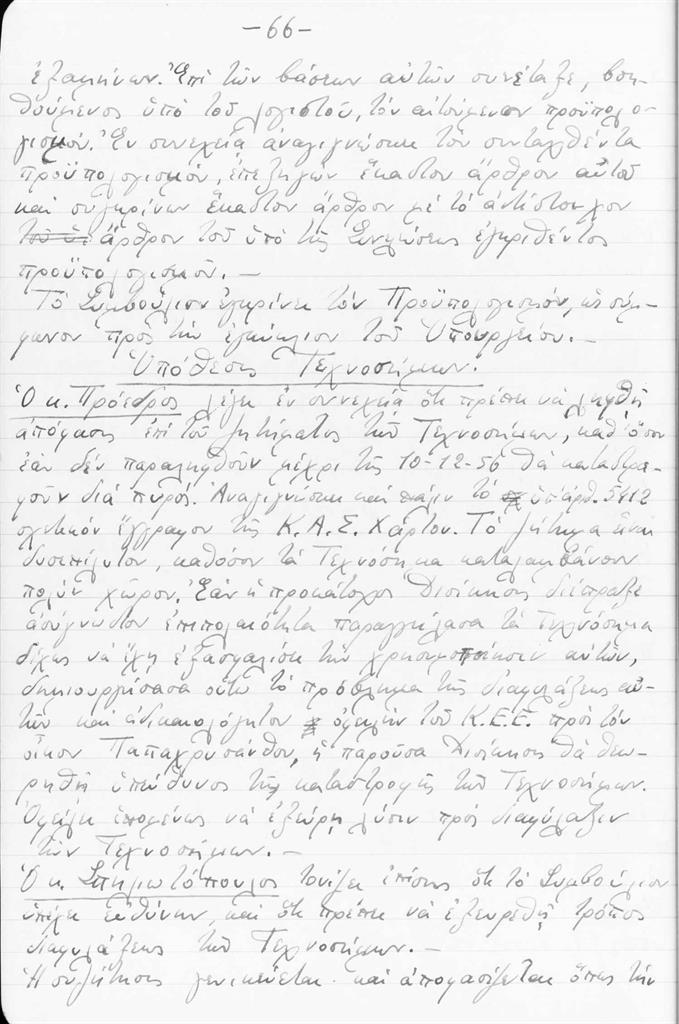 -66-
ἑξαμήνων. Ἐπὶ τῶν βάσεων αὐτῶν συνέταξε, βοη-
θούμενος ὑπὸ τοῦ λογιστοῦ, τὸν αἰτούμενον προϋπολο-
γισμόν. Ἐν συνεχείᾳ ἀναγιγνώσκει τὸν συνταχθέντα
προϋπολογισμόν, ἐπεξηγῶν ἕκαστον ἄρθρον αὐτοῦ
καὶ συγκρίνων ἕκαστον ἄρθρον μὲ τὸ ἀντίστοιχον
ἄρθρον τοῦ ὑπὸ τῆς Συνελεύσεως ἐγκριθέντος
προϋπολογισμοῦ. —
Τὸ Συμβούλιον ἐγκρίνει τὸν Προϋπολογισμόν, ὡς σύμ-
φωνον πρὸς τὴν ἐγκύκλιον τοῦ Ὑπουργείου. —
Ὑπόθεσις Τεχνοσήμων.
Ὁ κ. Πρόεδρος λέγει ἐν συνεχείᾳ ὅτι πρέπει νὰ ληφθῇ
ἀπόφασις ἐπὶ τοῦ ζητήματος τῶν Τεχνοσήμων, καθ' ὅσον
ἐὰν δὲν παραληφθοῦν μέχρι τῆς 10-12-56 θὰ καταστρα-
φοῦν διὰ πυρός. Ἀναγιγνώσκει καὶ πάλιν τὸ ὑπ' ἀρ. 5412
σχετικὸν ἔγγραφον τῆς Κ.Α.Ε. Χάρτου. Τὸ ζήτημα εἶναι
δυσεπίλυτον, καθόσον τὰ Τεχνόσημα καταλαμβάνουν
πολὺν χῶρον. Ἐὰν ἡ προκάτοχος Διοίκησις διέπραξε
ἀσύγνωστον ἐπιπολαιότητα παραγγείλασα τὰ Τεχνόσημα
δίχως νὰ ἔχῃ ἐξασφαλίσει τὴν χρησιμοποίησιν αὐτῶν,
δημιουργήσασα οὕτω τὸ πρόβλημα τῆς διαφυλάξεως αὐ-
τῶν καὶ ἀδικαιολόγητον ὀφειλὴν τοῦ Κ.Ε.Ε. πρὸς τὸν
οἶκον Παπαχρυσάνθου, ἡ παροῦσα Διοίκησις θὰ θεω-
ρηθῇ ὑπεύθυνος τῆς καταστροφῆς τῶν Τεχνοσήμων.
Ὀφείλει ἑπομένως νὰ ἐξεύρῃ λύσιν πρὸς διαφύλαξιν
τῶν Τεχνοσήμων. —
Ὁ κ. Σπηλιωτόπουλος τονίζει ἐπίσης ὅτι τὸ Συμβούλιον
ὑπέχει εὐθύνην, καὶ ὅτι πρέπει νὰ ἐξευρεθῇ τρόπος
διαφυλάξεως τῶν Τεχνοσήμων. —
Ἡ συζήτησις γενικεύεται καὶ ἀποφασίζεται ὅπως τὴν